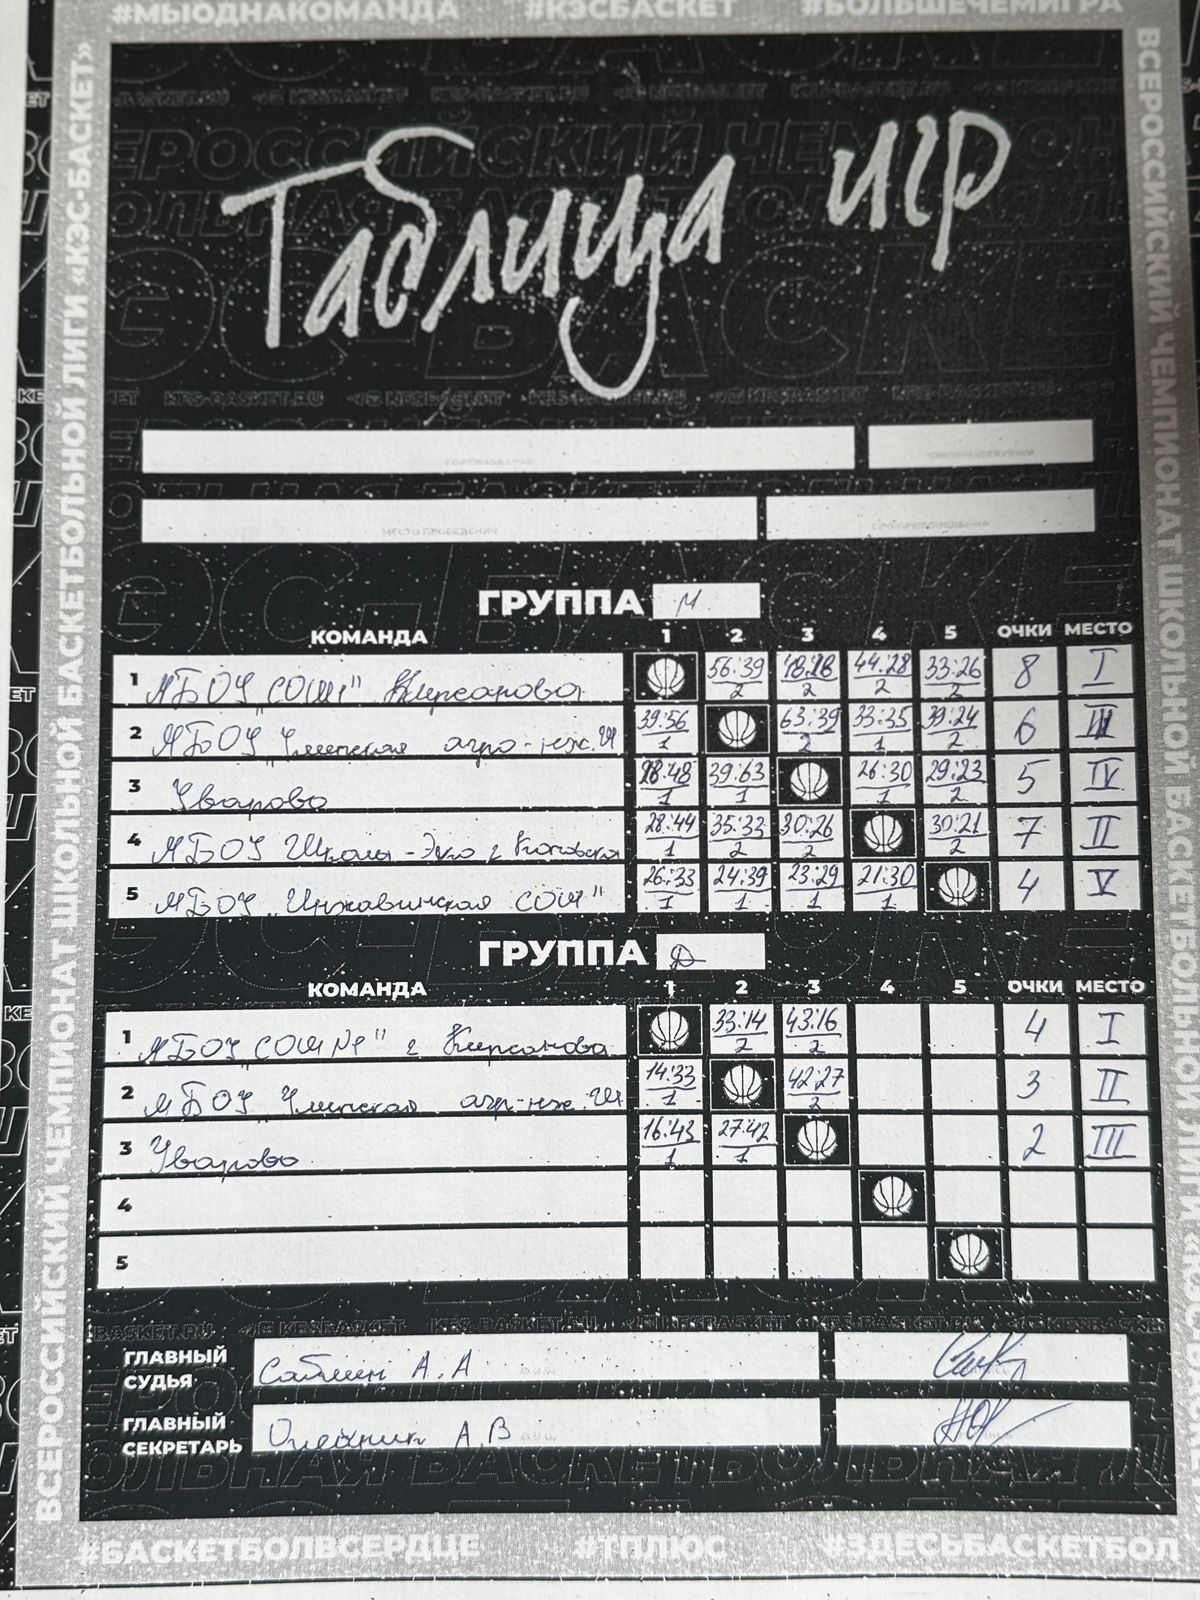 #МЫОДНАКОМАНДА #КЭСБАСКЕТ #БОЛЬШЕЧЕМИГРА
ВСЕРОССИЙСКИЙ ЧЕМПИОНАТ ШКОЛЬНОЙ БАСКЕТБОЛЬНОЙ ЛИГИ «КЭС-БАСКЕТ»
Таблица игр
МЕСТО ПРОВЕДЕНИЯ
ГРУППА М
КОМАНДА 1 2 3 4 5 ОЧКИ МЕСТО
1 МБОУ "СОШ" Кирсанова 56:39 2 48:28 2 44:28 2 33:26 2 8 I
2 МБОУ агро-инж. Ш 39:56 1 63:39 2 33:35 1 39:24 2 6 III
3 Уварово 28:48 1 39:63 1 26:30 1 29:23 2 5 IV
4 МБОУ Школа-Эко г Котовска 28:44 1 35:33 2 30:26 2 30:21 2 7 II
5 МБОУ СОШ" 26:33 1 24:39 1 23:29 1 21:30 1 4 V
ГРУППА Д
КОМАНДА 1 2 3 4 5 ОЧКИ МЕСТО
1 МБОУ "СОШ №1" г Кирсанова 33:14 2 43:16 2 4 I
2 МБОУ агр-инж. Ш 14:33 1 42:27 2 3 II
3 Уварово 16:43 1 27:42 1 2 III
4
5
ГЛАВНЫЙ СУДЬЯ Саблин А.А
ГЛАВНЫЙ СЕКРЕТАРЬ А.В
#БАСКЕТБОЛВСЕРДЦЕ #ТПЛЮС #ЗДЕСЬБАСКЕТБОЛ